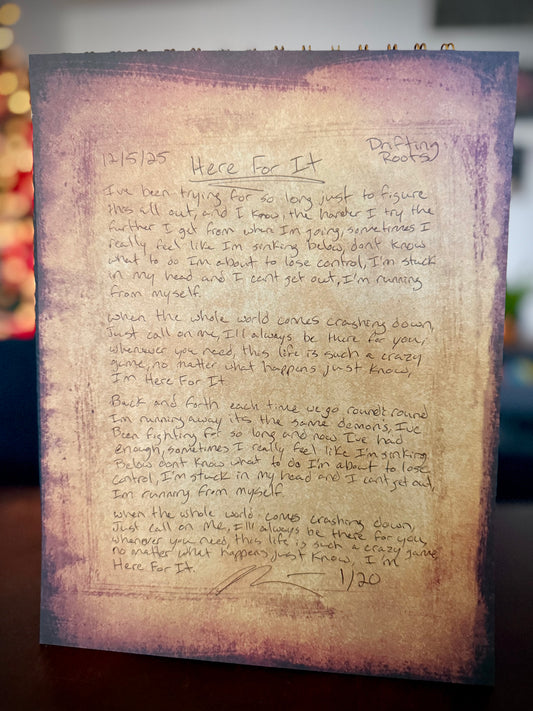 12/5/25
Here For It
Drifting
Roots
I've been trying for so long just to figure
this all out, and I know, the harder I try the
further I get from where I'm going, sometimes I
really feel like Im sinking below, dont know
what to do Im about to lose control, I'm stuck
in my head and I cant get out, I'm running
from myself.
when the whole world comes crashing down,
Just call on me, I'll always be there for you,
whenever you need, this life is such a crazy
game, no matter what happens just know,
I'm Here For It
Back and forth each time we go round & round
Im running away its the same demons, I've
Been fighting for so long and now I've had
enough, sometimes I really feel like I'm sinking
Below dont know what to do I'm about to lose
control, I'm stuck in my head and I cant get out,
Im running from myself.
when the whole world comes crashing down,
Just call on me, I'll always be there for you,
whenever you need, this life is such a crazy game,
no matter what happens just know, I'm
Here For It.
1/20